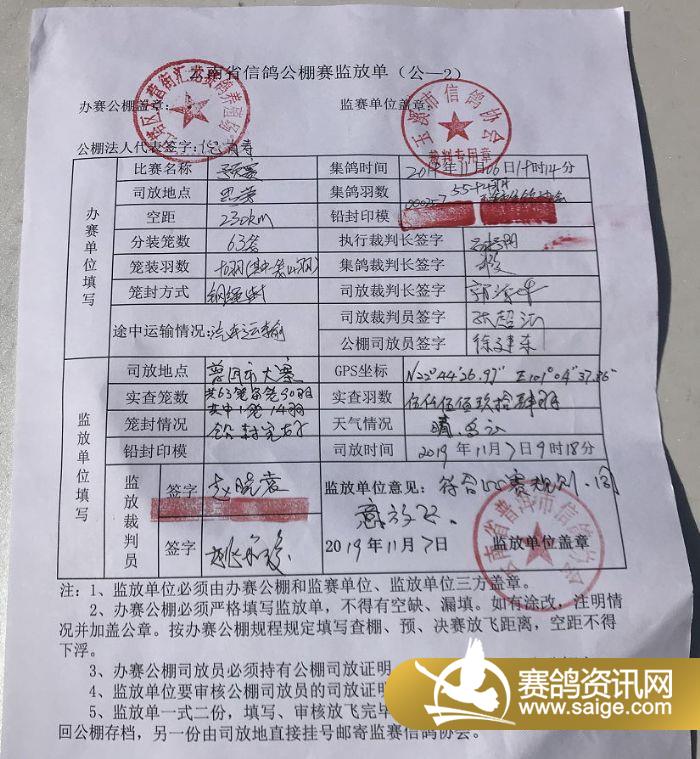 云南省信鸽公棚赛监放单（公—2）
办赛公棚盖章： 监赛单位盖章：
玉溪市信鸽协会
裁判专用章
公棚法人代表签字：
办赛单位填写
比赛名称 集鸽时间 2019年11月06日14时14分
司放地点 思茅 集鸽羽数
空距 230km 铅封印模 000257
分装笼数 63笼 执行裁判长签字
笼装羽数 集鸽裁判长签字
笼封方式 司放裁判长签字
途中运输情况：汽车运输 司放裁判员签字
公棚司放员签字 徐建东
监放单位填写
司放地点 普洱市大寨 GPS坐标 N22°44′26.97″ E101°04′37.86″
实查笼数 共63笼每笼90羽 其中1笼14羽 实查羽数 伍仟伍佰玖拾肆羽
笼封情况 铅封完好 天气情况 晴
铅封印模 司放时间 2019年11月7日9时18分
监放裁判员
签字 赵晓袁 监放单位意见：符合比赛规则.同
意放飞.
签字 2019年11月7日 监放单位盖章
云南省普洱市信鸽协会
注：1、监放单位必须由办赛公棚和监赛单位、监放单位三方盖章。
2、办赛公棚必须严格填写监放单，不得有空缺、漏填。如有涂改，注明情
况并加盖公章。按办赛公棚规程规定填写查棚、预、决赛放飞距离，空距不得
下浮。
3、办赛公棚司放员必须持有公棚司放证明
4、监放单位要审核公棚司放员的司放证明
5、监放单一式二份，填写、审核放飞完毕
回公棚存档，另一份由司放地直接挂号邮寄监赛信鸽协会。
赛鸽资讯网
www.saige.com